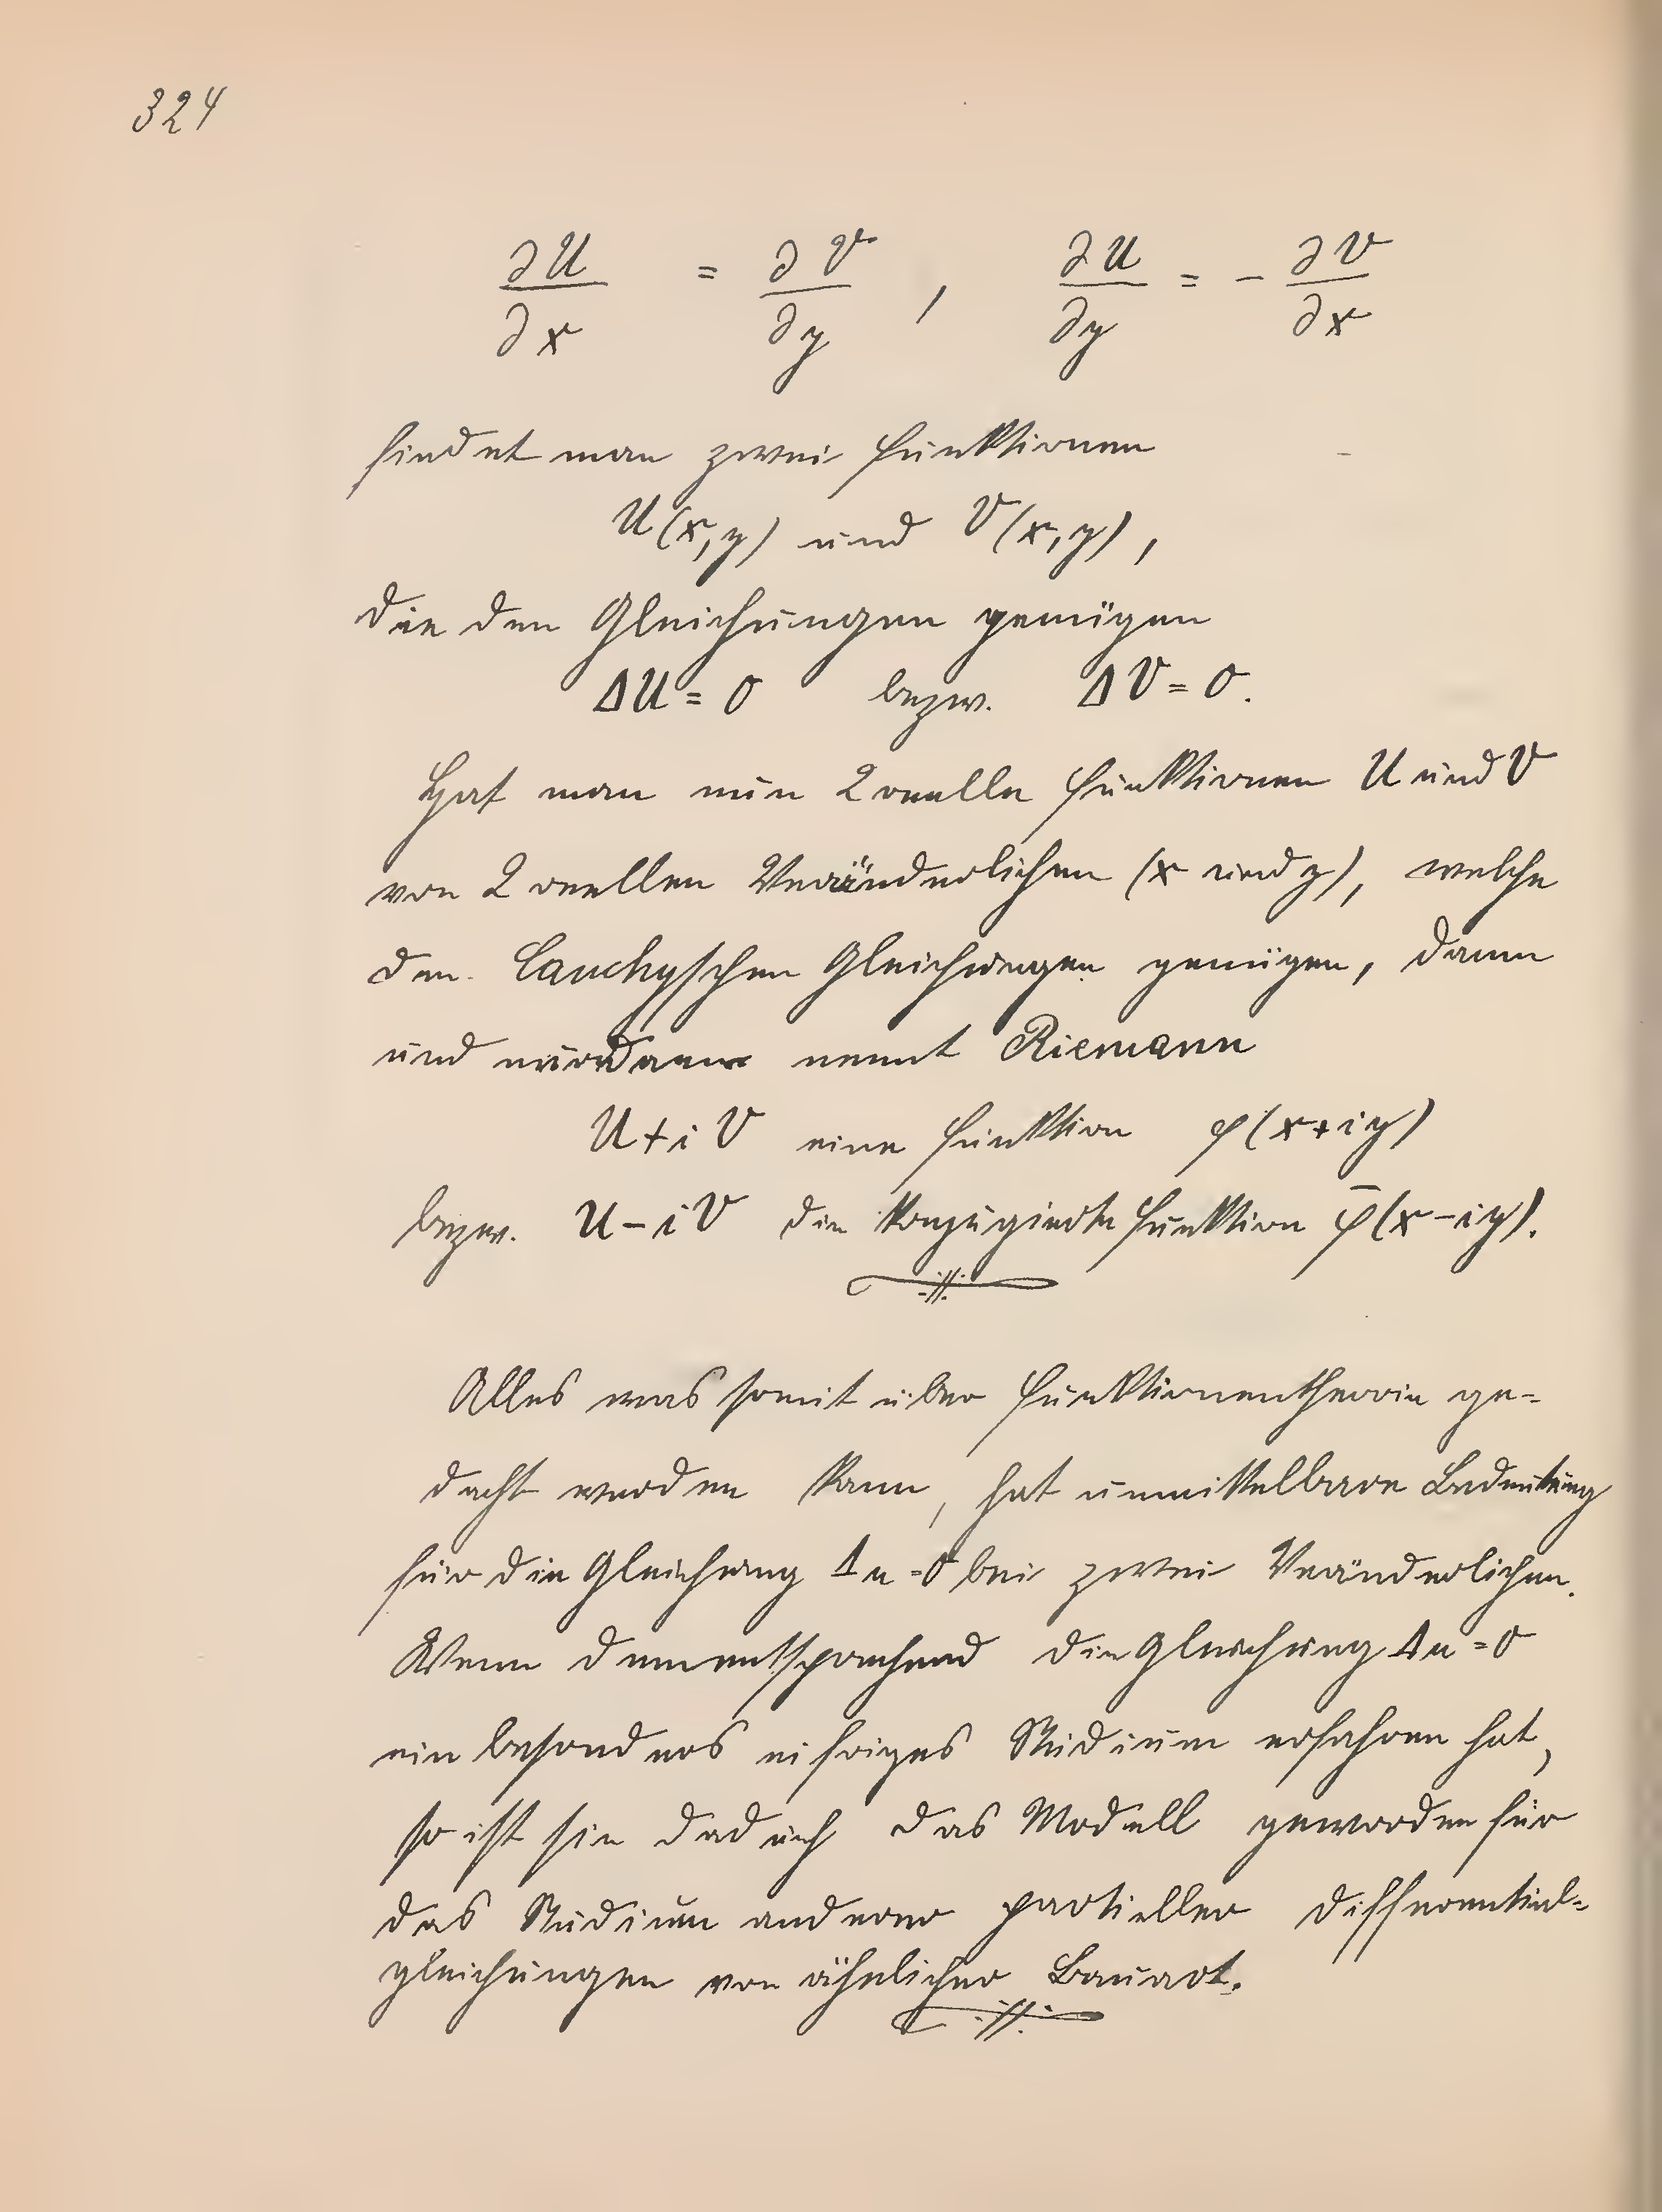 324
∂U/∂x = ∂V/∂y , ∂U/∂y = - ∂V/∂x
findet man zwei Funktionen
U(x,y) und V(x,y),
die den Gleichungen genügen
ΔU = 0 bezw. ΔV = 0.
Hat man nun 2 reelle Funktionen U und V
von 2 reellen Veränderlichen (x und y), welche
den Cauchyschen Gleichungen genügen, dann
und nur dann nennt Riemann
U+iV eine Funktion φ(x+iy)
bezw. U-iV die konjugierte Funktion φ̄(x-iy).
Alles was somit über Funktionentheorie ge-
dacht werden kann, hat unmittelbare Bedeutung
für die Gleichung Δu=0 bei zwei Veränderlichen.
Wenn dementsprechend die Gleichung Δu=0
ein besonderes eifriges Studium erfahren hat,
so ist sie dadurch das Modell geworden für
das Studium anderer partieller Differential-
gleichungen von ähnlicher Bauart.